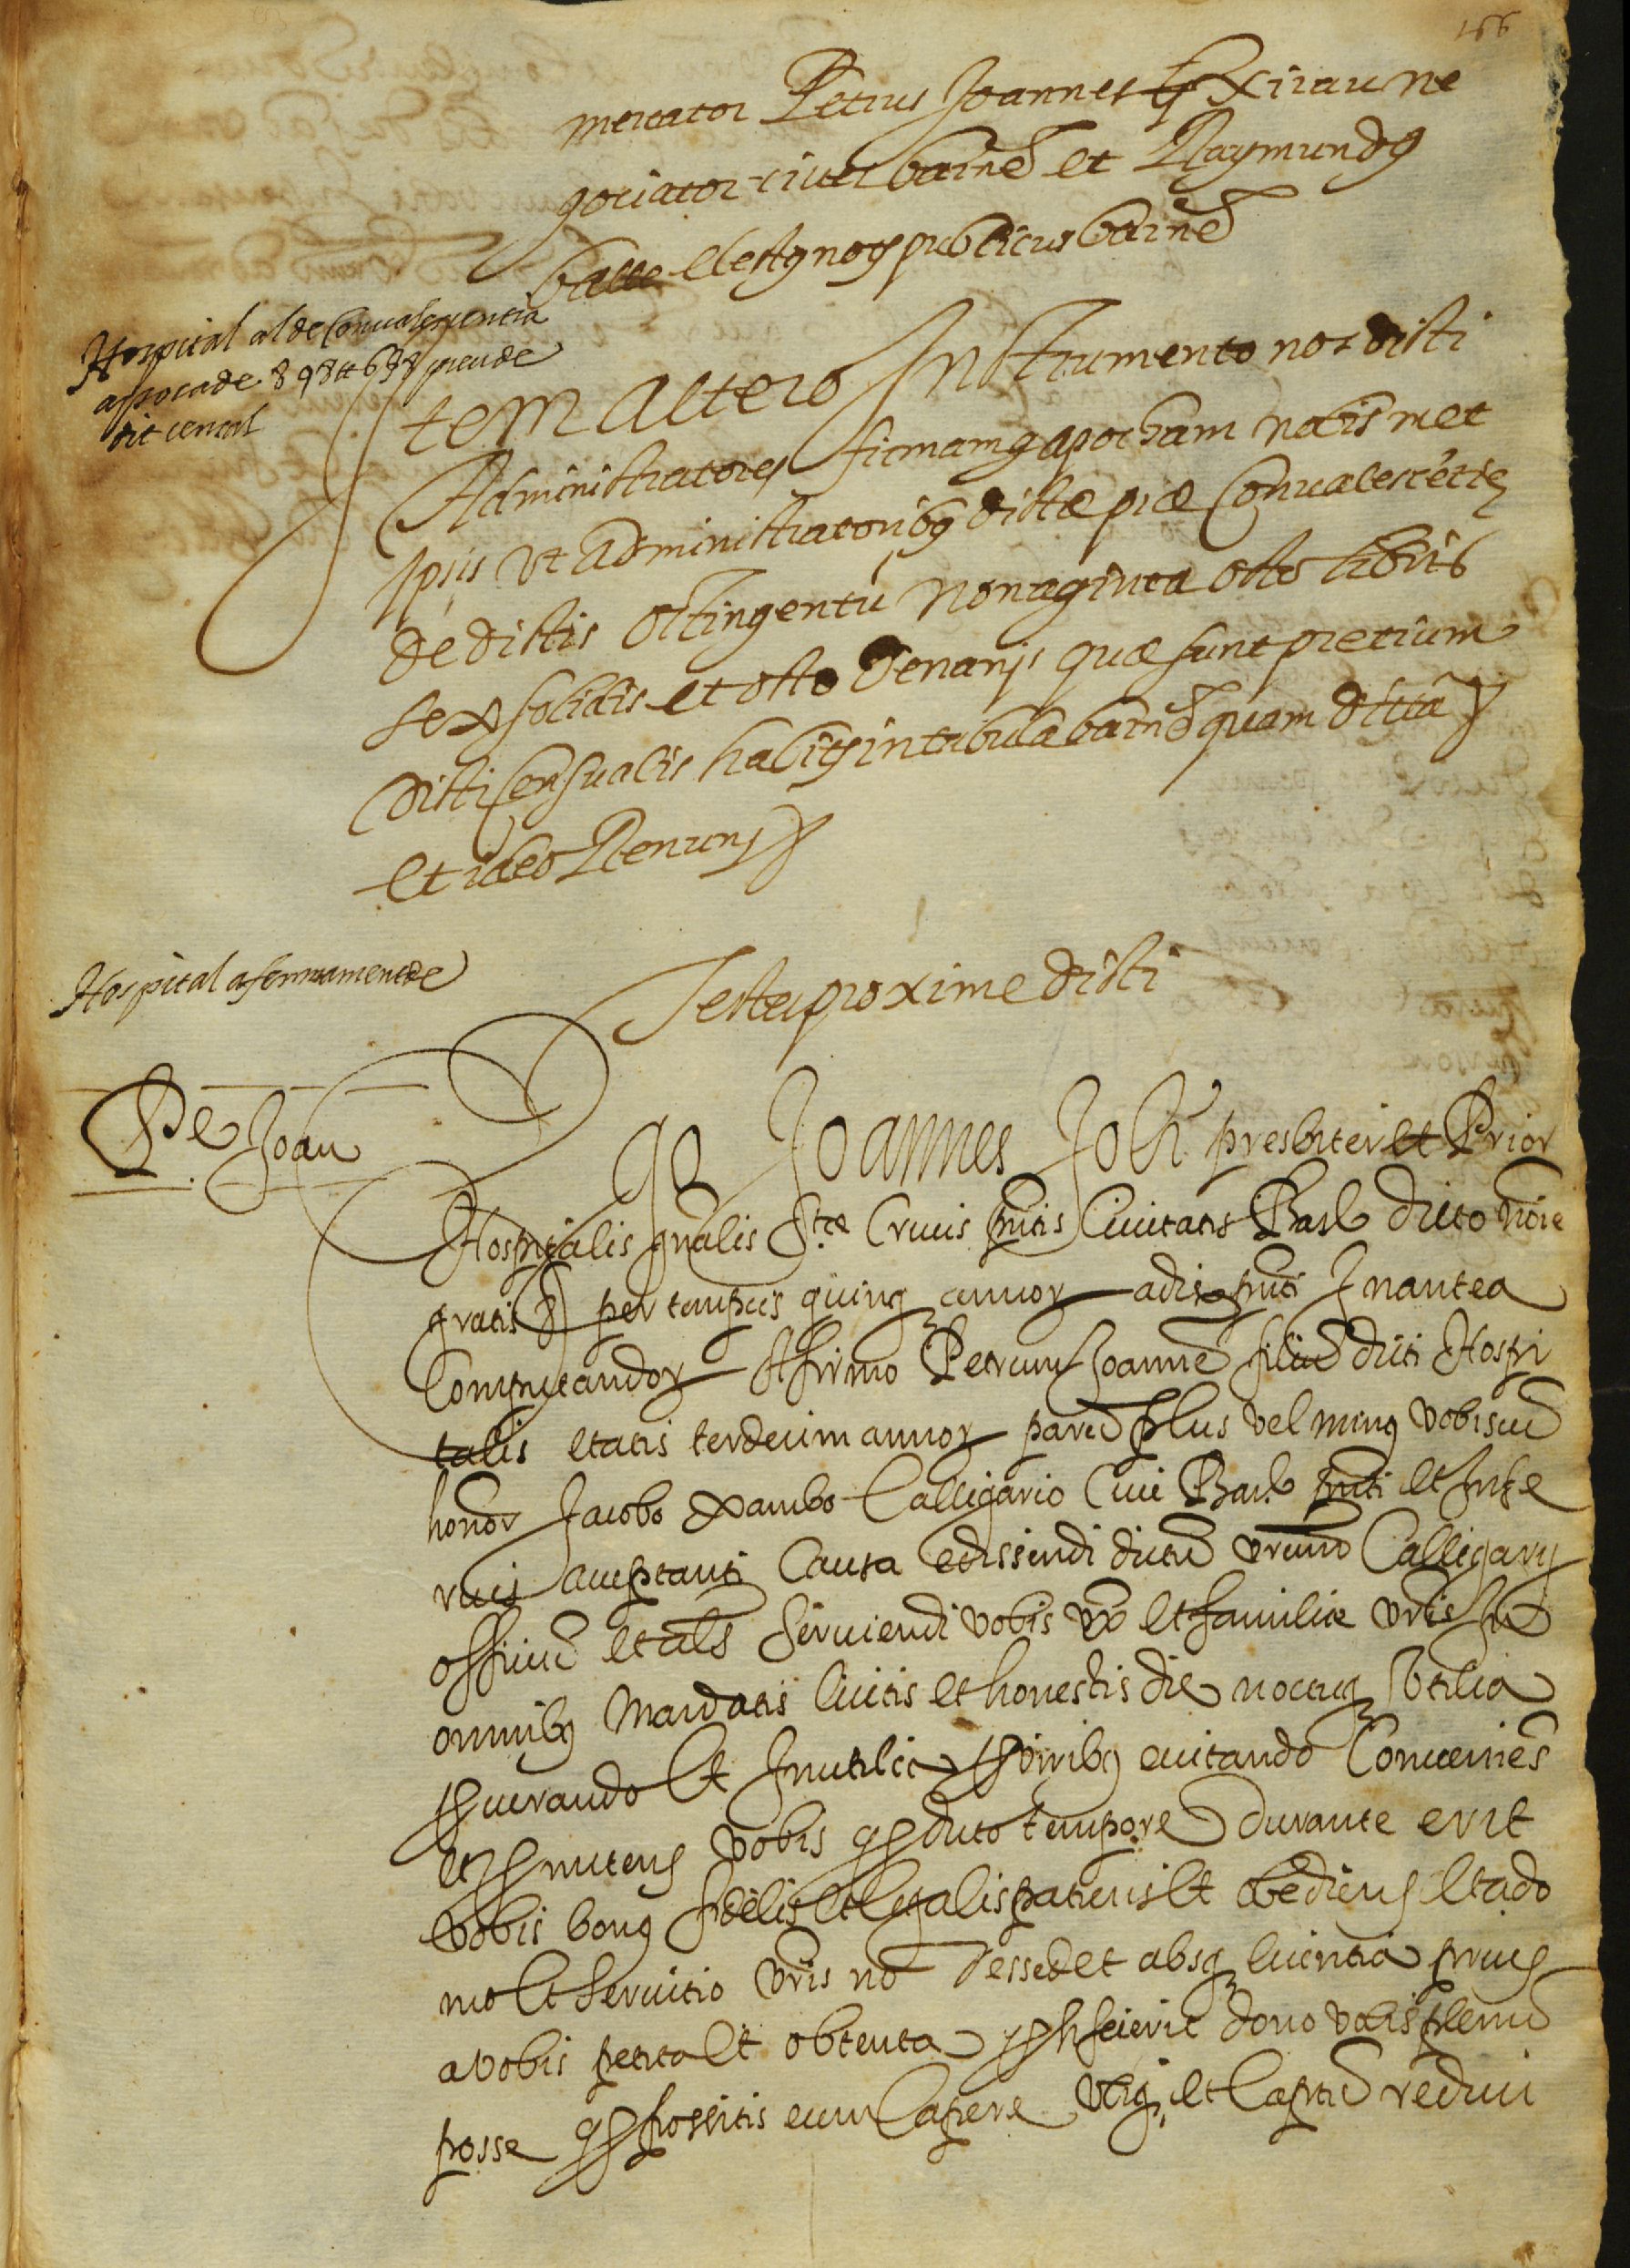 166
mercator Petrus Joannes Xirau ne
gociator cives barne et Raymundus
batlle llesty nots publicus barne
Hospital al de Convalescentia
apoca de 898 ₶ 6 s 8 preu de
dit censal
Item altero Instrumento nos dicti
Administratores firmamus apocham nobis met
ipsis ut administratoribus dictæ piæ Convalescétie
de dictis octingentu nonaginta octo libris
sex solidis et octo denarijs quæ sunt pretium
dicti censualis habits in tabula barne quam ditta
et ideo Renuns
Hospital afermament de
Testes proxime dicti
Pe Joan
Ego Joannes Joli presbiter et Prior
Hospitalis gnalis Stæ Crucis pntis Civitatis Barc dicto noīe
gratis per tempus quinq annor adie pnti Inantea
Computandor Afirmo Petrum Joannē filiū dicti Hospi
talis etatis terdecim annor parū plus vel minus vobiscū
honor Jacobo Xambo Calligario Civi Barc pnti et Infe
rius acceptanti Causa edissendi dictū vrūm Calligarij
officiū et als serviendi vobis et familiæ vris in
omnibus Mandatis licitis et honestis die noctuq Utilia
procurando et Inutilia pro viribus evitando Conveniēs
et promitens vobis qs dicto tempore durante erit
vobis bonus fidelis et legalis patiens et obediens et a do
mo et servitio vris nō discedet absq licentia prius
a vobis petita et obtenta qs si fecerit dono vobis plenū
posse qs possitis eum Capere Ubiq et Captū reduci